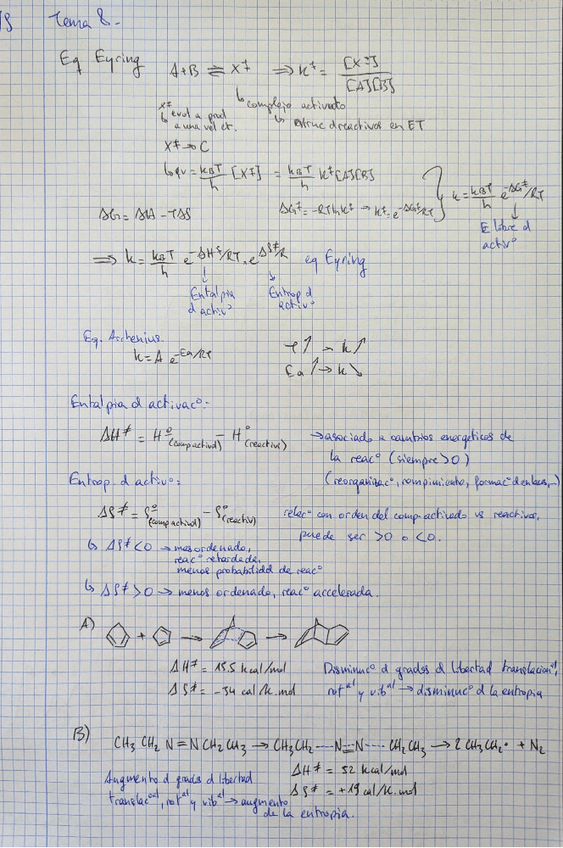 Tema 8.-
Eq Eyring A+B ⇌ X‡ ⇒ K‡ = [X‡] / [A][B]
↳ complejo activado
X‡ evol a prod a una vel ct. ↳ estruc d reactivos en ET
X‡ → C
↳ v = kBT/h [X‡] = kBT/h K‡[A][B]
k = kBT/h e^-ΔG‡/RT
ΔG = ΔH - TΔS ΔG‡ = -RTlnK‡ → K‡ = e^-ΔG‡/RT
E libre d activº
⇒ k = kBT/h e^-ΔH‡/RT · e^ΔS‡/R eq Eyring
Entalpia d activº Entrop d activº
Eq. Arrhenius.
k = A e^-Ea/RT
T↑ → k↑
Ea↑ → k↘
Entalpia d activacº:
ΔH‡ = Hº(comp activad) - Hº(reactivs) → asociado a cambios energéticos de
la reacº (siempre >0)
(reorganizacº, rompimiento, formacº d enlaces,..)
Entrop. d activº:
ΔS‡ = Sº(comp activad) - Sº(reactiv) relacº con orden del comp. activado vs reactivos,
puede ser >0 o <0.
↳ ΔS‡ <0 → mas ordenado,
reacº retardada,
menos probabilidd de reacº
↳ ΔS‡ >0 → menos ordenado, reacº accelerada.
A) + → →
ΔH‡ = 15.5 kcal/mol
ΔS‡ = -34 cal/K.mol
Disminucº d grados d libertad translacionˡ,
rotᵃˡ y vibᵃˡ → disminucº d la entropia
B) CH3 CH2 N=N CH2 CH3 → CH3CH2 --- N=N --- CH2CH3 → 2 CH3CH2• + N2
ΔH‡ = 52 kcal/mol
ΔS‡ = +19 cal/K.mol
Augmento d grads d libertad
translacᵒᵃˡ, rotᵃˡ y vibᵃˡ → augmento
de la entropia.